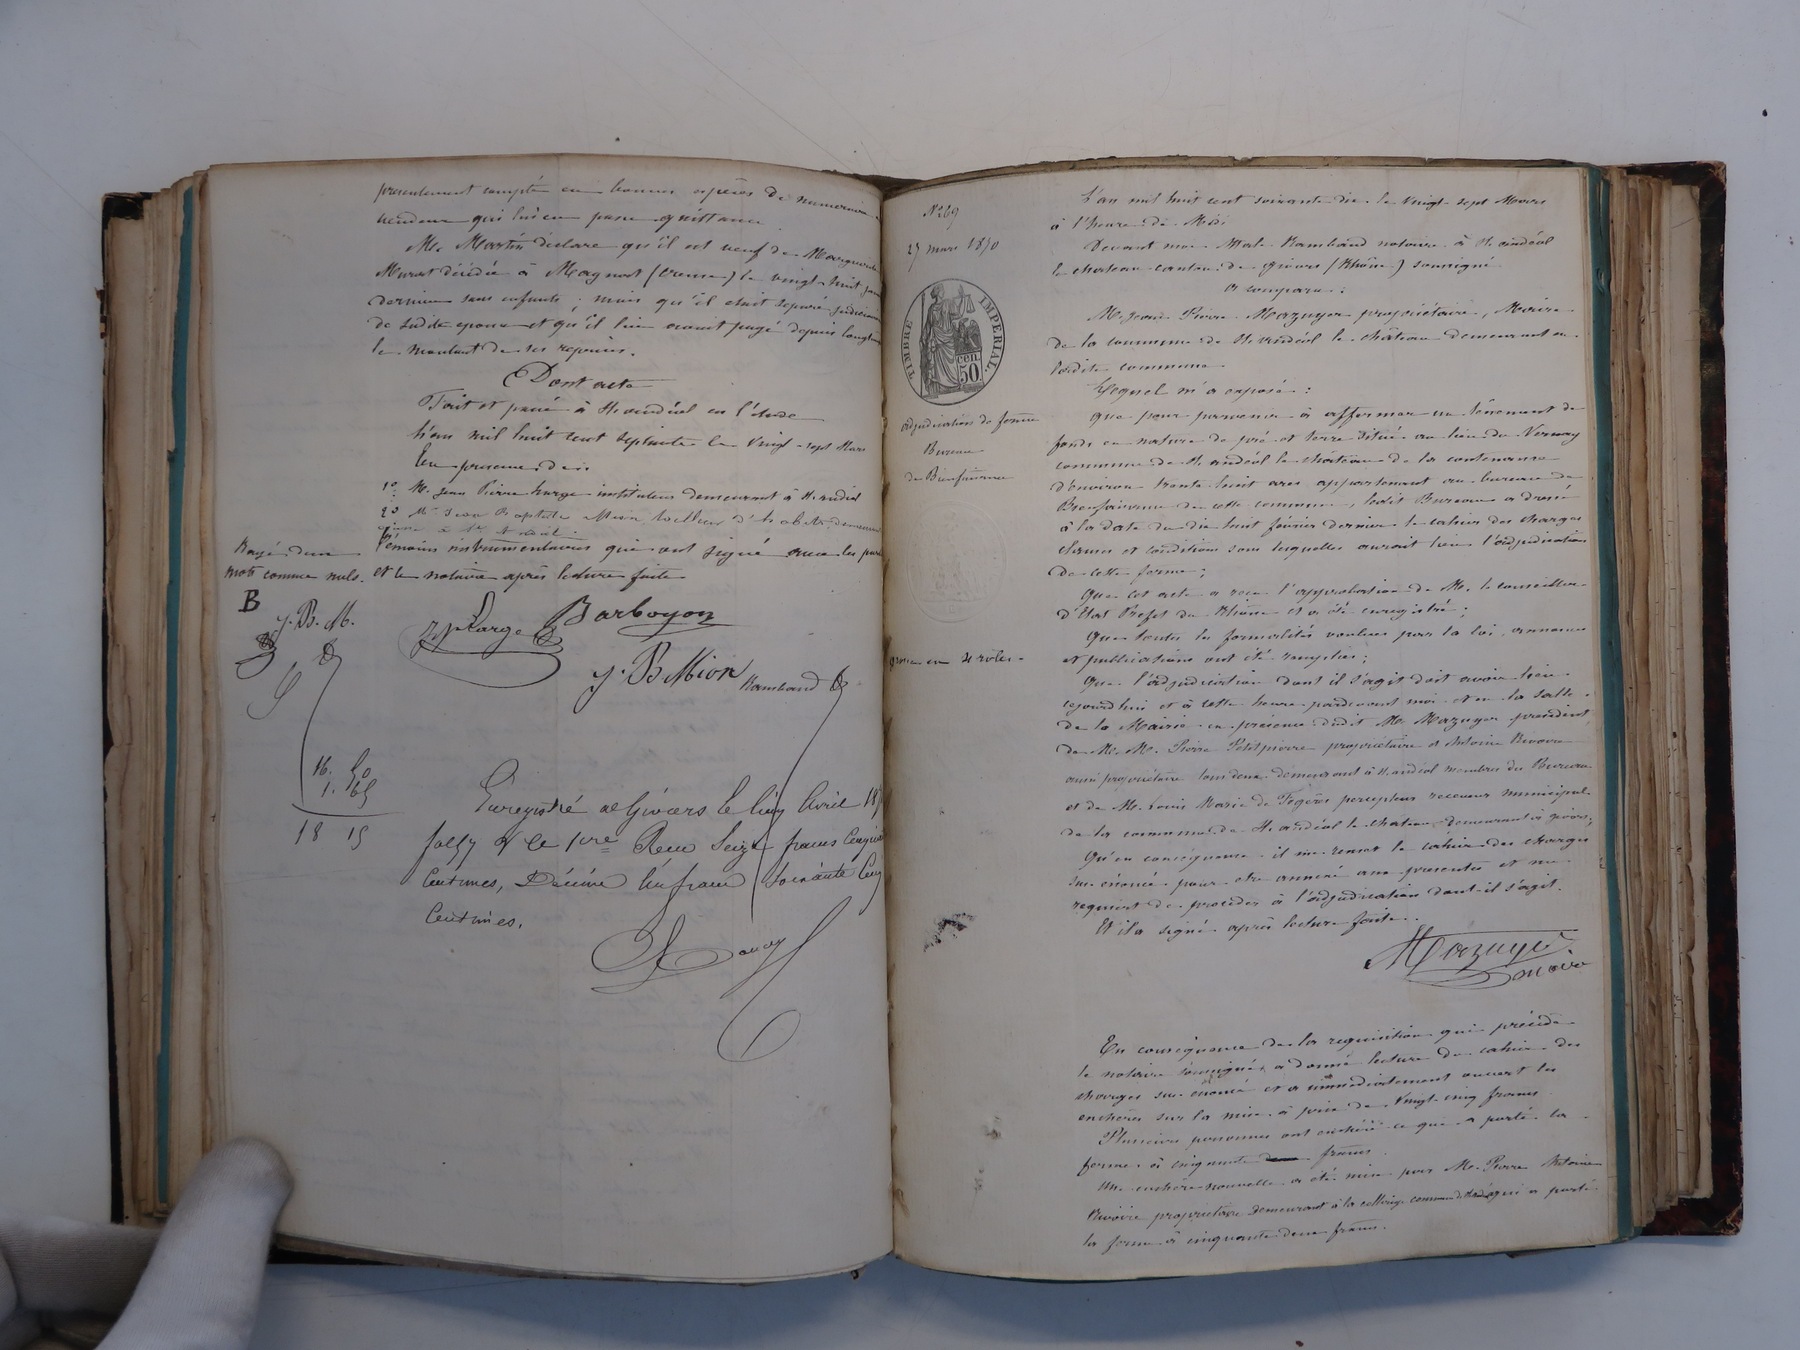 presentement comptée en bonnes espèces de numeraire
vendeur qui lui en passe quittance
Mr. Martin déclare qu'il est veuf de Marguerite
Murat décédée à Magnat (Creuse) le vingt-huit
dernier sans enfants ; mais qu'il était séparé
de sadite epouse et qu'il lui avait payé depuis longtemps
le montant de ses reprises.
Dont acte
Fait et passé à St. andéol en l'étude
L'an mil huit cent septante le vingt-sept Mars
En presence de :
1º M. Jean Pierre Large instituteur demeurant à St. andéol
2º Mr Jean Baptiste Mion tailleur d'habits demeurant
témoins instrumentaires qui ont signé avec les
et le notaire après lecture faite
Rayé deux
mots comme nuls.
B
J. B. M.
JP Large
Barboyon
J. B Mion
Rambaud
16. 50
1. 65
18 15
Enregistré à Givors le cinq Avril
folio Reçu Seize francs Cinquante
Centimes, Décime Un franc Soixante Cinq
Centimes.
Nº 69
27 mars 1870
TIMBRE IMPERIAL
50 cen.
adjudication de ferme
Bureau
de Bienfaisance
L'an mil huit cent soixante dix le vingt-sept Mars
à l'heure de Midi
Devant moi Rambaud notaire à St. andéol
le chateau canton de Givors (Rhône) soussigné
a comparu :
M. Jean Pierre Mazuyer propriétaire, Maire
de la commune de St. andéol le château demeurant en
ladite commune
Lequel m'a exposé :
Que pour parvenir à affermer un tènement de
fonds en nature de pré et terre situé au lieu du Vernay
commune de St. andéol le château de la contenance
d'environ trente huit ares appartenant au bureau de
Bienfaisance de cette commune, ledit Bureau a dressé
à la date du dix huit février dernier le cahier des charges
clauses et conditions sous lesquelles aurait lieu l'adjudication
de cette ferme ;
Que cet acte a reçu l'approbation de M. le conseiller
d'Etat Prefet du Rhône et a été enregistré ;
Que toutes les formalités voulues par la loi, annonces
et publications ont été remplies ;
Que l'adjudication dont il s'agit doit avoir lieu
cejourd'hui et à cette heure pardevant moi et en la salle
de la Mairie en présence dudit M. Mazuyer président,
de M. M. Pierre Petitpierre propriétaire et Antoine Rivoire
aussi propriétaire tous deux demeurant à St. andéol membres du Bureau
et de M. Louis Marie de percepteur receveur municipal
de la commune de St. andéol le chateau demeurant à givors ;
Qu'en conséquence il me remet le cahier des charges
sus énoncé pour etre annexé aux presentes et me
requiert de procéder à l'adjudication dont il s'agit.
Et il a signé après lecture faite.
Mazuyer
maire
En conséquence de la requisition qui précède
le notaire soussigné, a donné lecture du cahier des
charges sus énoncé et a immédiatement ouvert les
enchères sur la mise à prix de vingt-cinq francs.
Plusieurs personnes ont enchéri ce qui a porté la
ferme à cinquante francs.
Une enchère nouvelle a été mise par M. Pierre Antoine
Rivoire propriétaire demeurant à qui a porté
la ferme à cinquante deux francs.